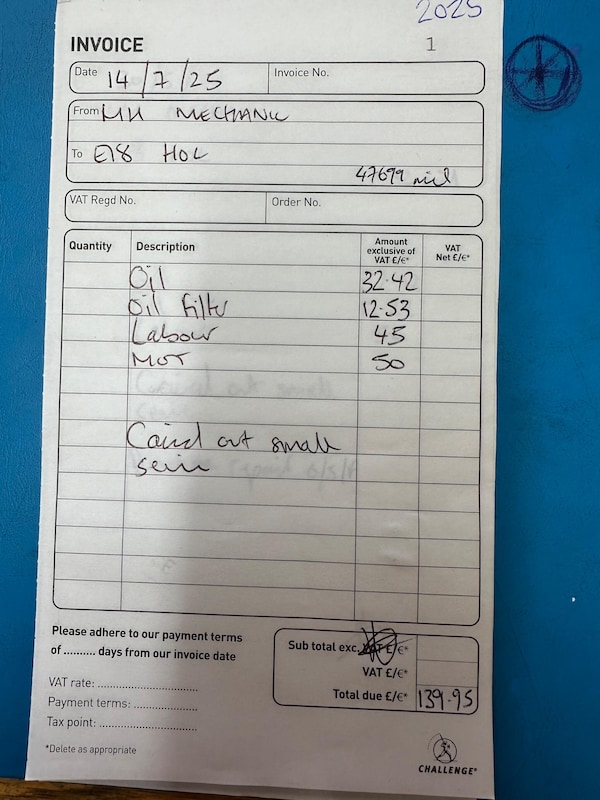 2025
INVOICE 1
Date 14/7/25 Invoice No.
From MECHANIC
To E18 HOL
47699 mil
VAT Regd No. Order No.
Quantity Description Amount exclusive of VAT £/€* VAT Net £/€*
Oil 32.42
Oil filter 12.53
Labour 45
MOT 50
out small
Please adhere to our payment terms
of .......... days from our invoice date
Sub total exc. VAT £/€*
VAT £/€*
Total due £/€* 139.95
VAT rate: ..............................
Payment terms: ...................
Tax point: .............................
*Delete as appropriate
CHALLENGE®